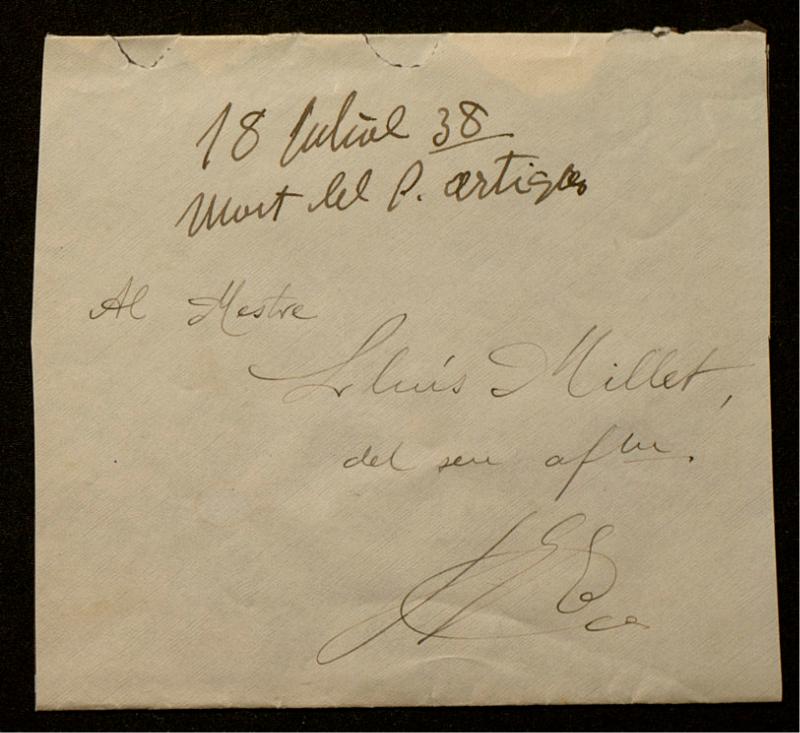 18 Juliol 38
Mort del P. Artigas
Al Mestre
Lluís Millet,
del seu afm.